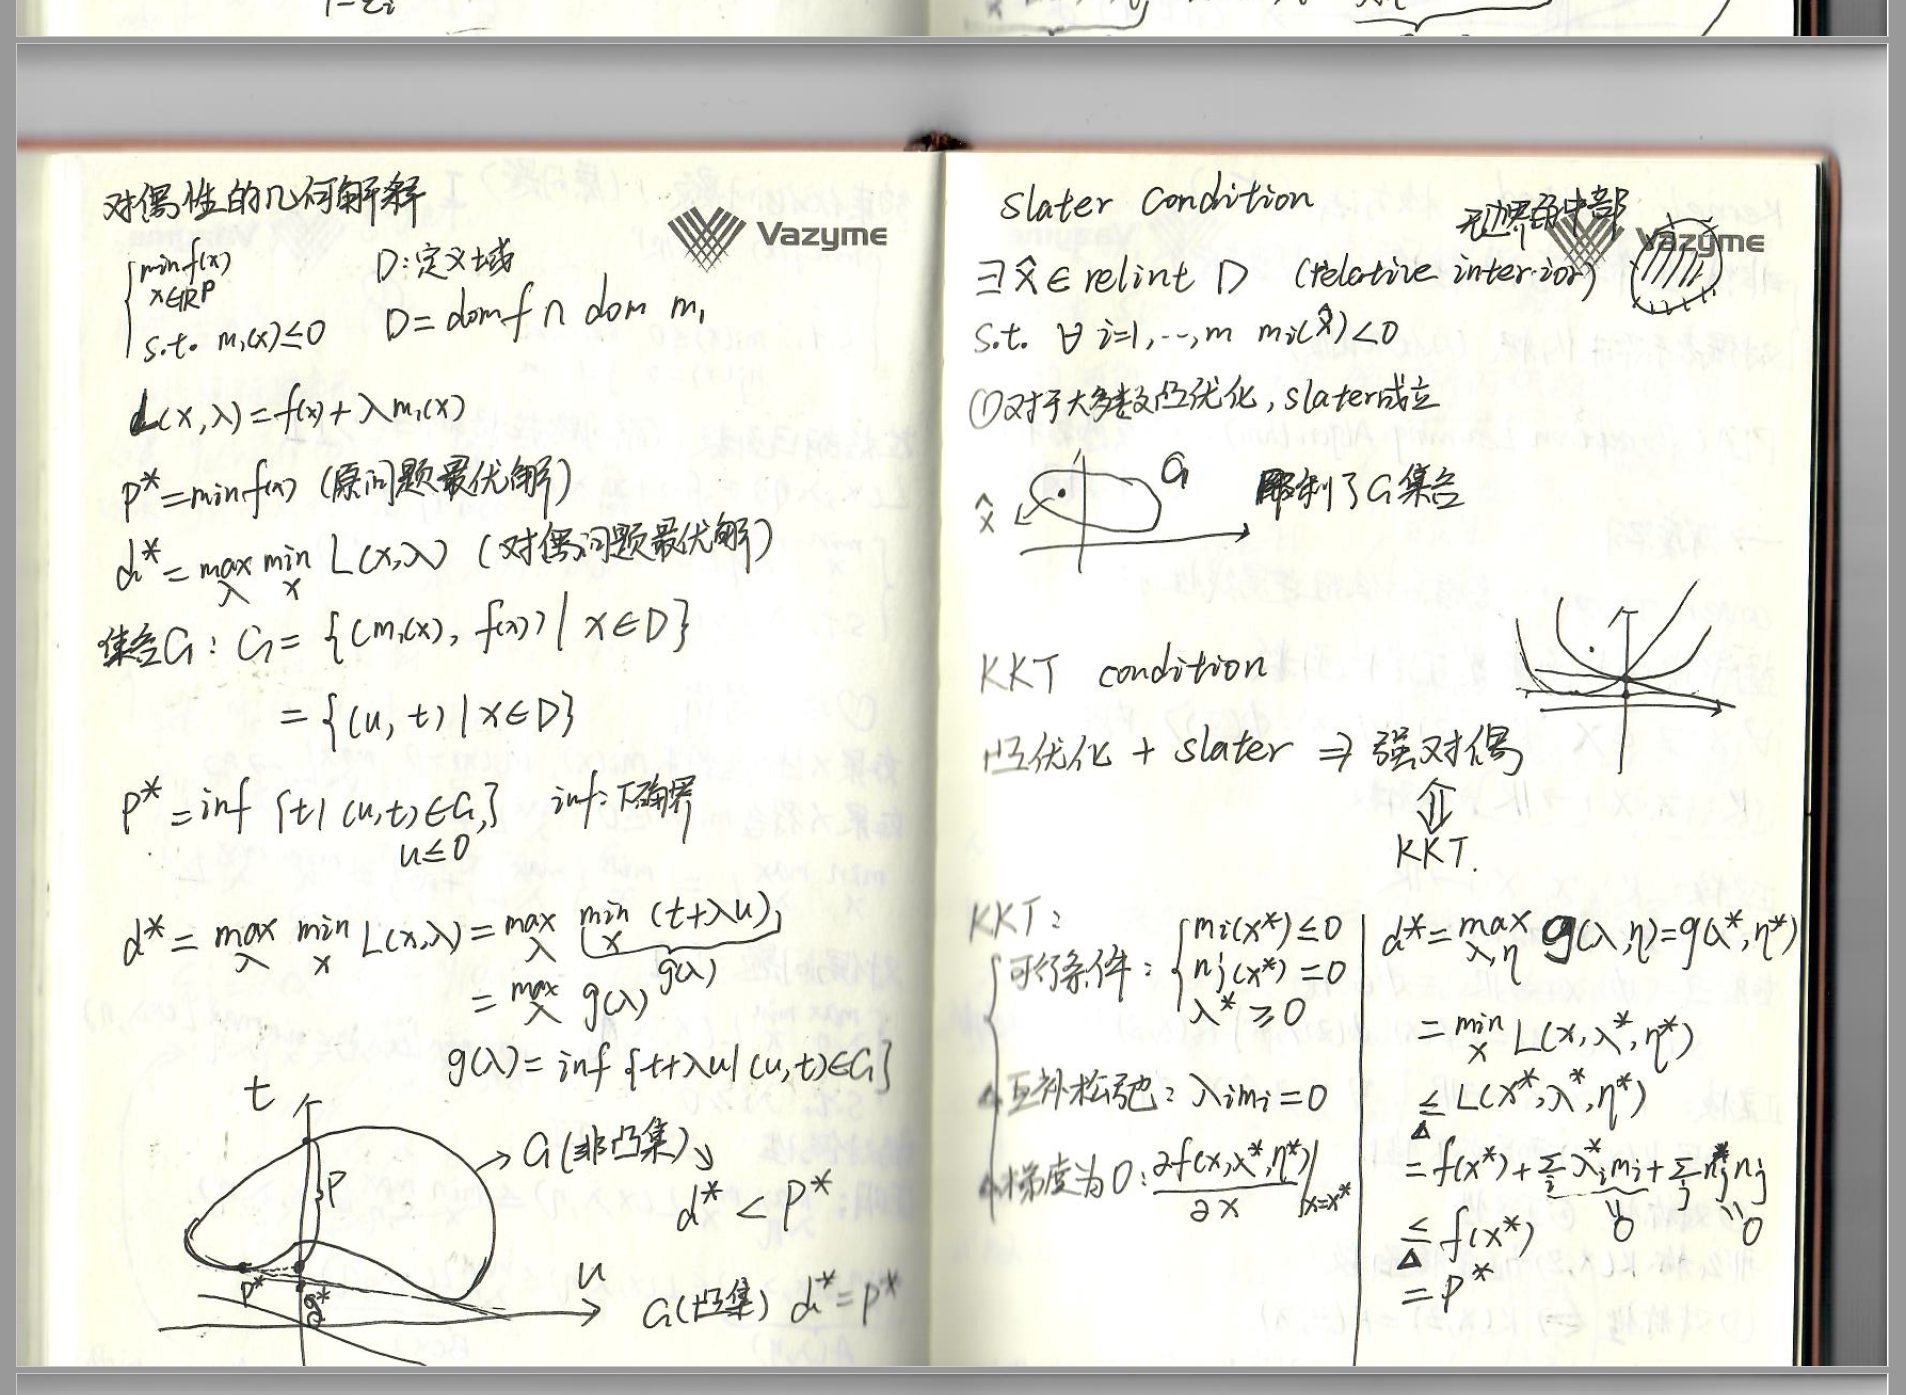 对偶性的几何解释
Vazyme
min f(x)
x∈ℝᵖ
s.t. m₁(x)≤0
D:定义域
D = dom f ∩ dom m₁
L(x,λ) = f(x) + λm₁(x)
p* = min f(x) (原问题最优解)
d* = max_λ min_x L(x,λ) (对偶问题最优解)
集合G: G = {(m₁(x), f(x)) | x∈D}
= {(u, t) | x∈D}
p* = inf {t | (u,t)∈G, u≤0} inf:下确界
d* = max_λ min_x L(x,λ) = max_λ min_x (t+λu)
g(λ)
= max_λ g(λ)
g(λ) = inf {t+λu | (u,t)∈G}
t
p
G(非凸集)
d* < p*
u
p*
g*
G(凸集) d* = p*
slater condition
Vazyme
∃ x̂ ∈ relint D (relative interior)
s.t. ∀ i=1,...,m mᵢ(x̂)<0
①对于大多数凸优化, slater成立
x̂
G
限制了G集合
KKT condition
凸优化 + slater ⇒ 强对偶
⇕
KKT.
KKT:
可行条件: mᵢ(x*)≤0
nⱼ(x*)=0
λ*≥0
互补松弛: λᵢmᵢ=0
梯度为0: ∂f(x,λ*,η*)/∂x |x=x*
d* = max_λ,η g(λ,η) = g(λ*,η*)
= min_x L(x,λ*,η*)
≤ L(x*,λ*,η*)
= f(x*) + Σᵢ λᵢ*mᵢ + Σⱼ ηⱼ*nⱼ
=0 =0
≤ f(x*)
= p*